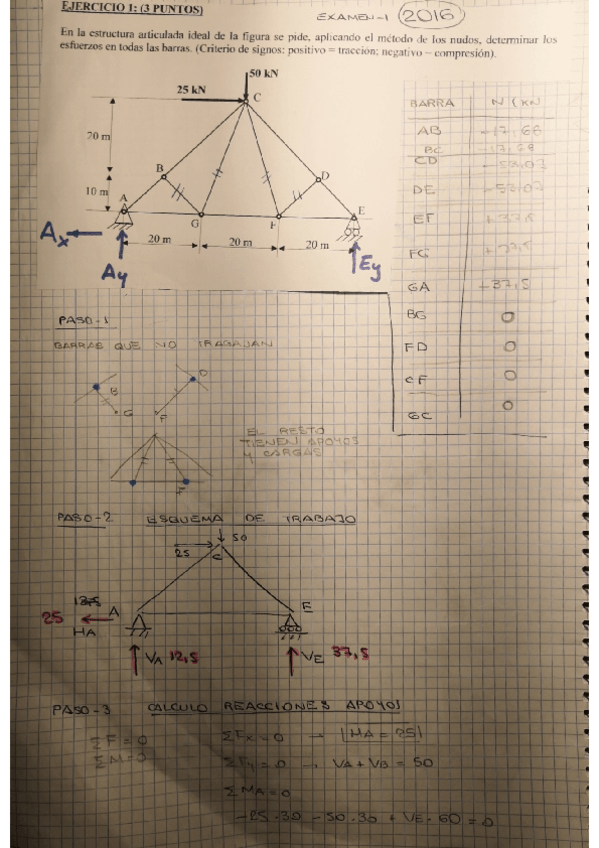 EJERCICIO 1: (3 PUNTOS)
EXAMEN-1 2016
En la estructura articulada ideal de la figura se pide, aplicando el método de los nudos, determinar los
esfuerzos en todas las barras. (Criterio de signos: positivo = tracción; negativo – compresión).
50 kN
25 kN
C
20 m
B
D
10 m
A
E
G
F
20 m
20 m
20 m
Ax
Ay
Ey
BARRA N (KN
AB -17,68
BC -17,68
CD -53,03
DE -53,03
EF +37,5
FG +37,5
GA +37,5
BG 0
FD 0
CF 0
GC 0
PASO-1
BARRAS QUE NO TRABAJAN
B
G
D
F
F
EL RESTO
TIENEN APOYOS
Y CARGAS
PASO-2 ESQUEMA DE TRABAJO
50
25
C
25
A
E
HA
VA 12,5
VE 37,5
PASO-3 CALCULO REACCIONES APOYOS
ΣF = 0
ΣM = 0
ΣFx = 0 → HA = 25
ΣFy = 0 → VA + VB = 50
ΣMA = 0
-25·30 - 50·30 + VE·60 = 0